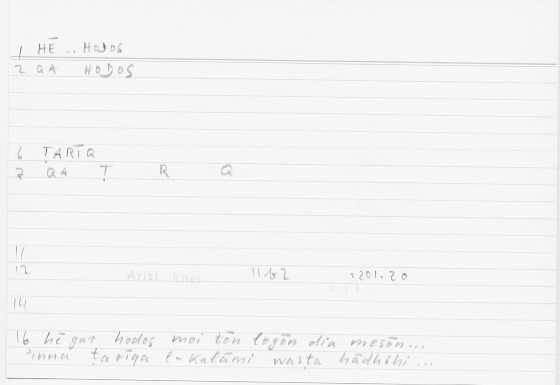 1 HĒ .. HODOS
2 QA HODOS
6 ṬARĪQ
7 QA Ṭ R Q
11
12 Arist Rhet 11b2 201.20
14
16 hē gar hodos moi tōn logōn dia mesōn...
inna ṭarīqa l-kalāmi wasṭa hādhihi ...